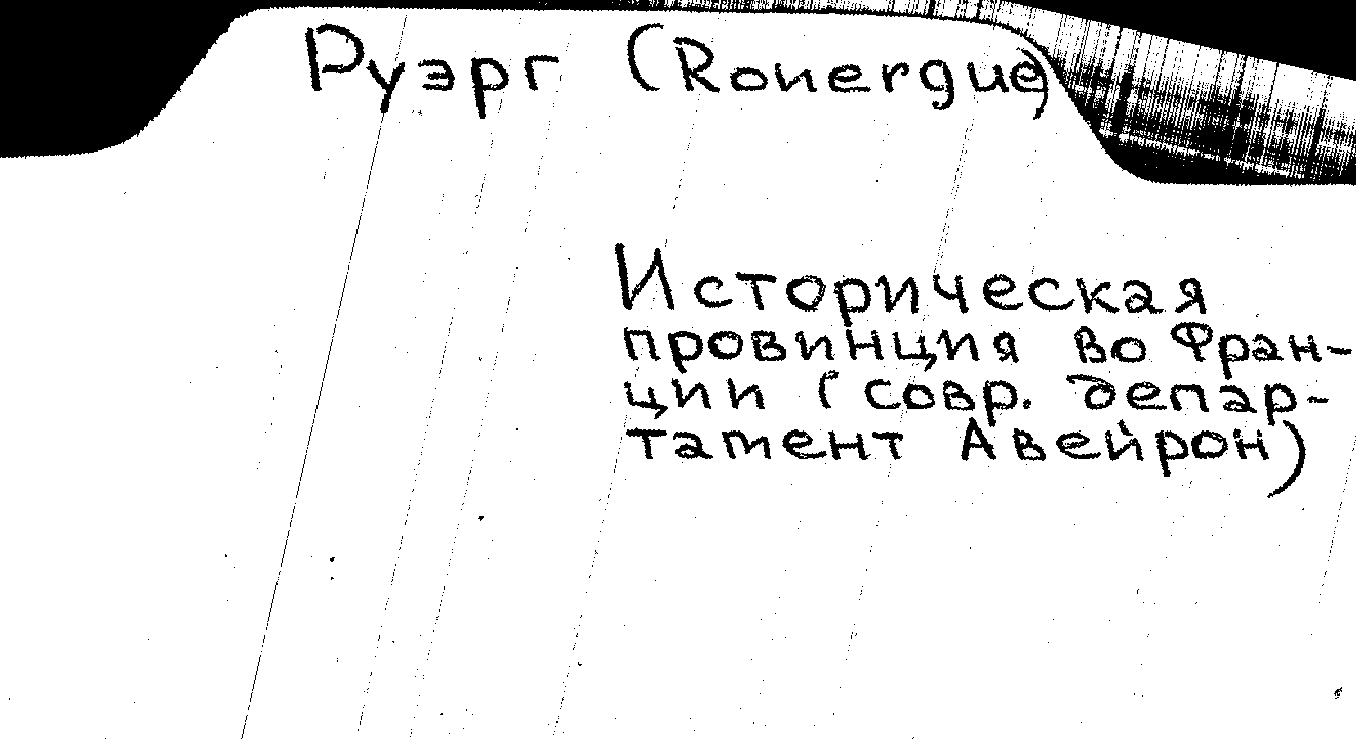 Руэрг (Rouergue)
Историческая
провинция во Фран-
ции (совр. депар-
тамент Авейрон)